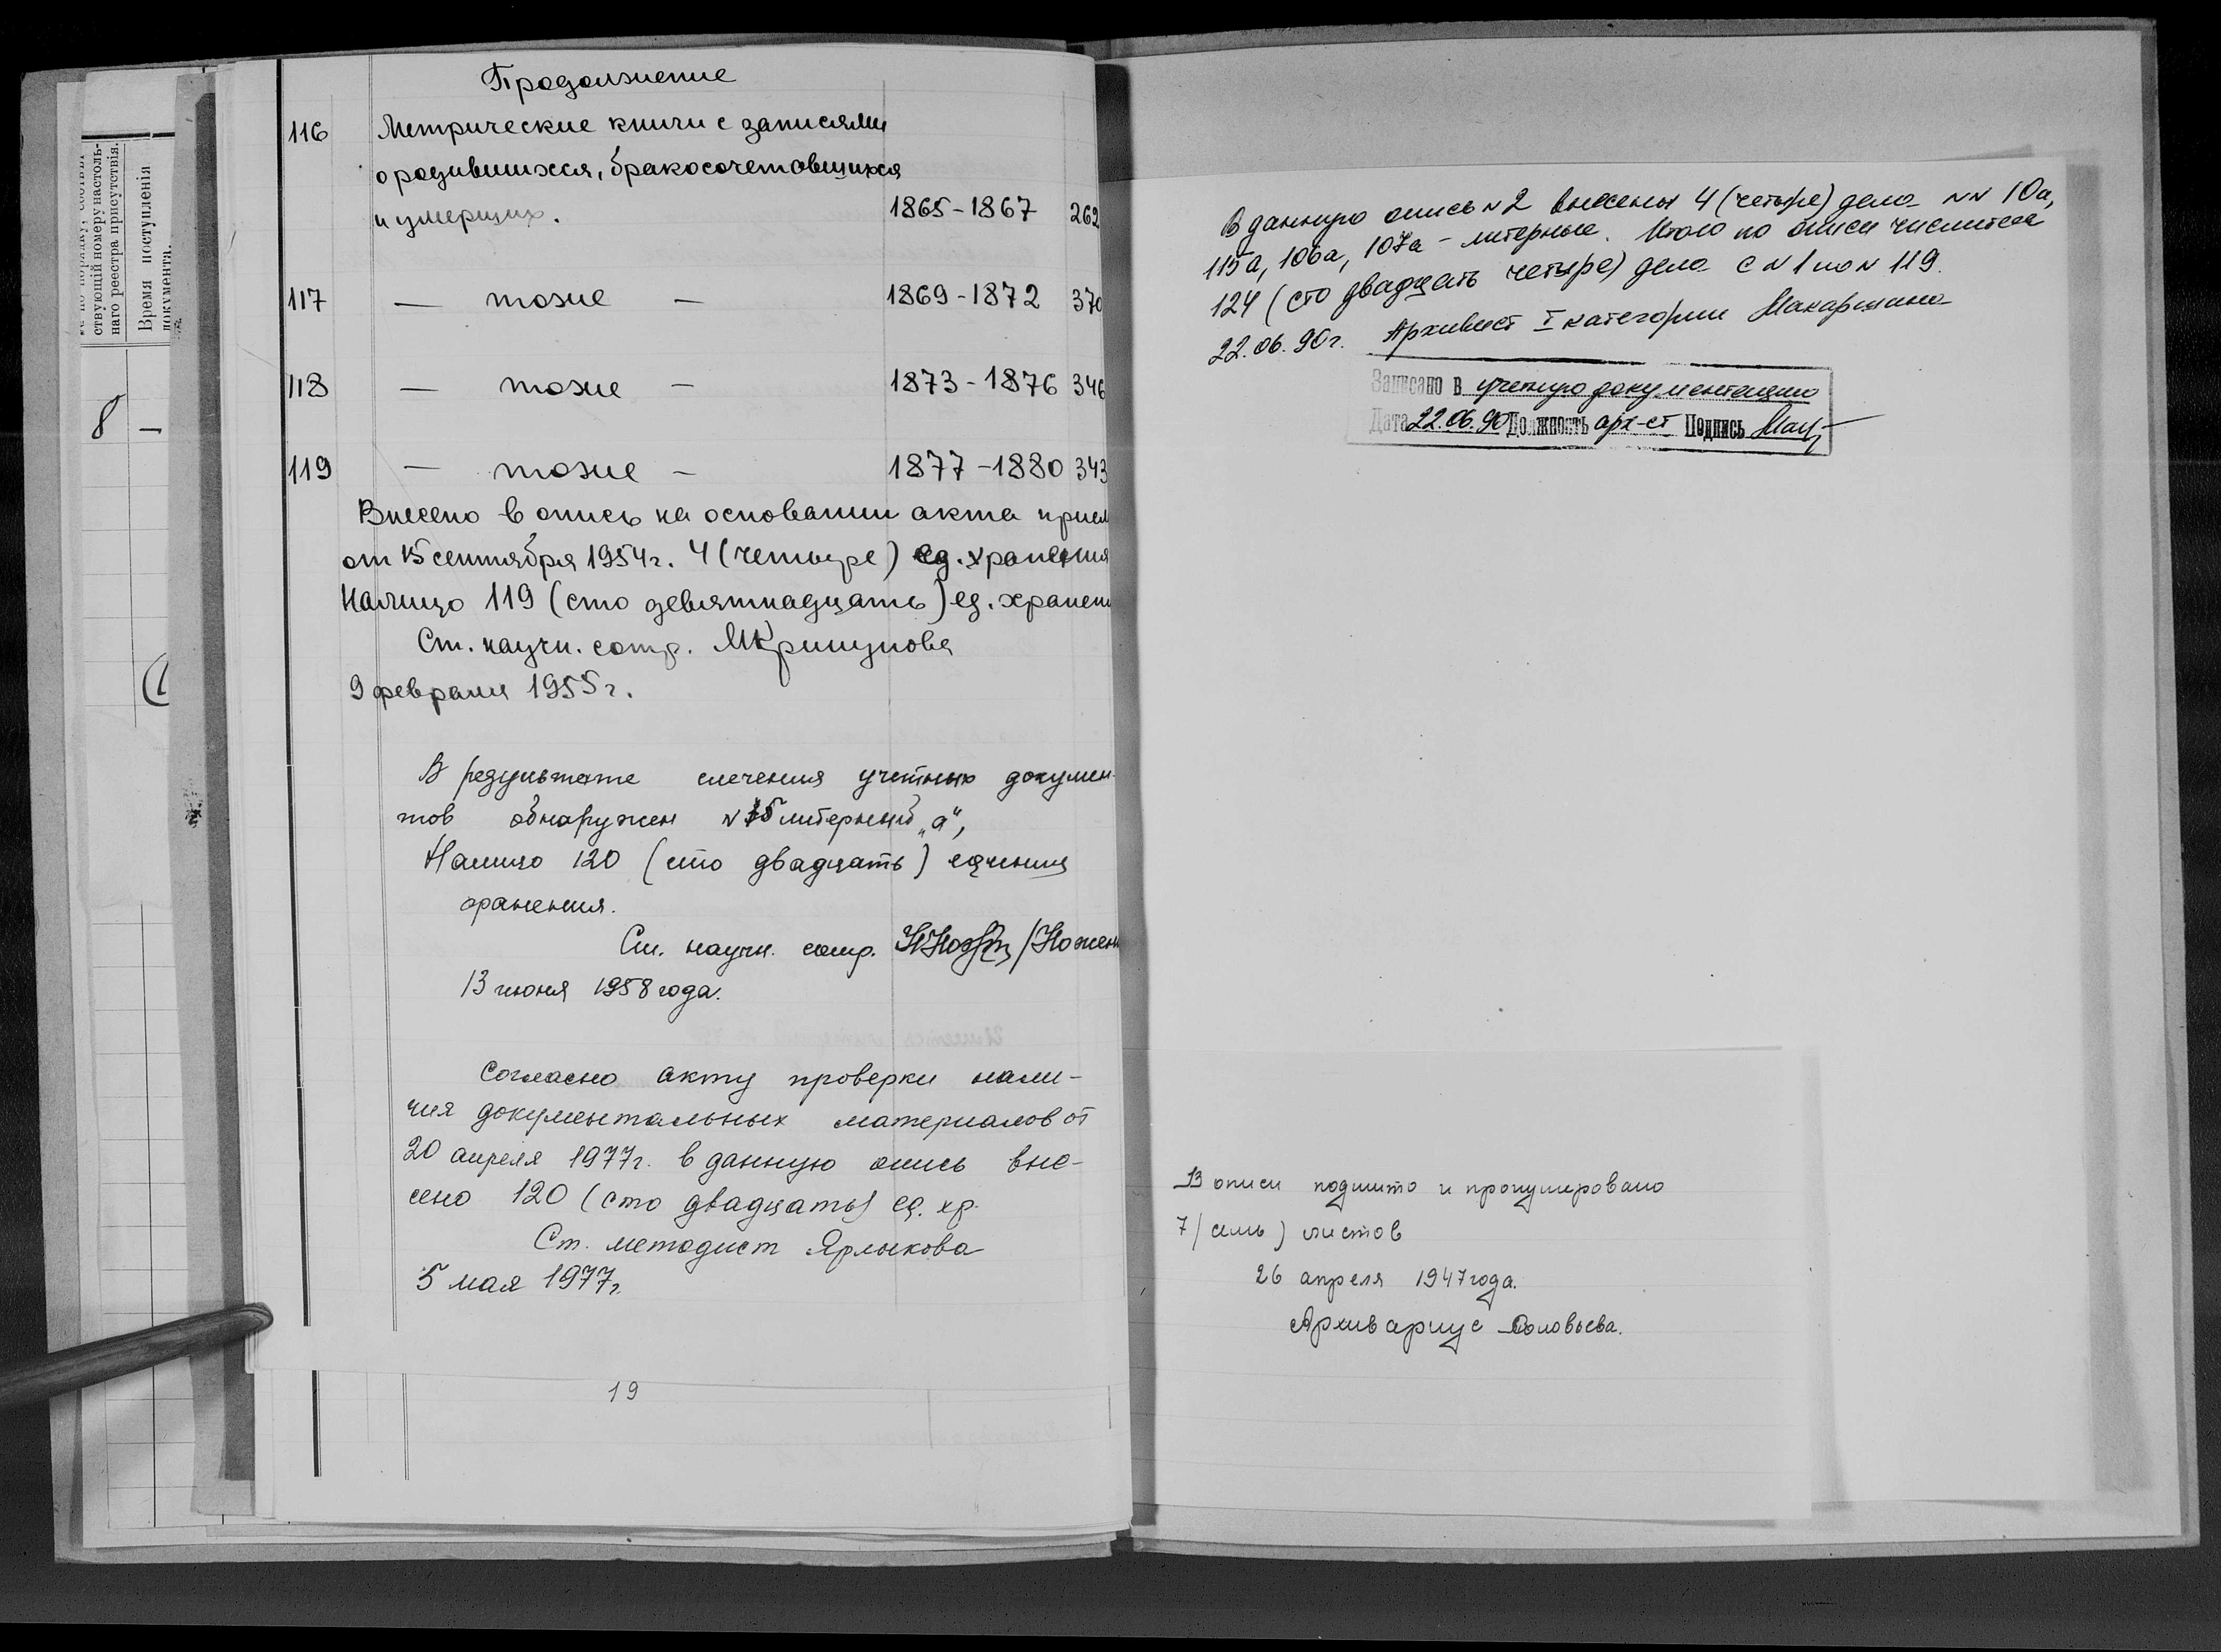 ствующій номеру настоль-
наго реестра присутствія.
Время поступленія
документа.
8 —
Продолжение
116 Метрические книги с записями
о родившихся, бракосочетавшихся
и умерших. 1865-1867 262
117 — тоже — 1869-1872 370
118 — тоже — 1873-1876 346
119 — тоже — 1877-1880 343
Внесено в опись на основании акта прием
от 15 сентября 1954г. 4 (четыре) ед. хранения
Налицо 119 (сто девятнадцать) ед. хранен
Ст. научн. сотр. МКришунова
9 февраля 1955г.
В результате сличения учетных докумен-
тов обнаружен N 15 литерный „а“,
Налицо 120 (сто двадцать) единиц
хранения.
Ст. научн. сотр. /Ножен
13 июня 1958 года.
Согласно акту проверки нали-
чия документальных материалов от
20 апреля 1977г. в данную опись вне-
сено 120 (сто двадцать) ед. хр.
Ст. методист Ярлыкова
5 мая 1977г.
19
В данную опись N 2 внесены 4 (четыре) дела NN 10а,
115а, 106а, 107а - литерные. Итого по описи числится
124 (сто двадцать четыре) дела с N 1 по N 119.
22.06.90г. Архивист I категории Макаршина
Записано в учетную документацию
Дата 22.06.90 Должность арх-ст Подпись
В описи подшито и пронумеровано
7 (семь) листов
26 апреля 1947 года.
Архивариус Соловьева.